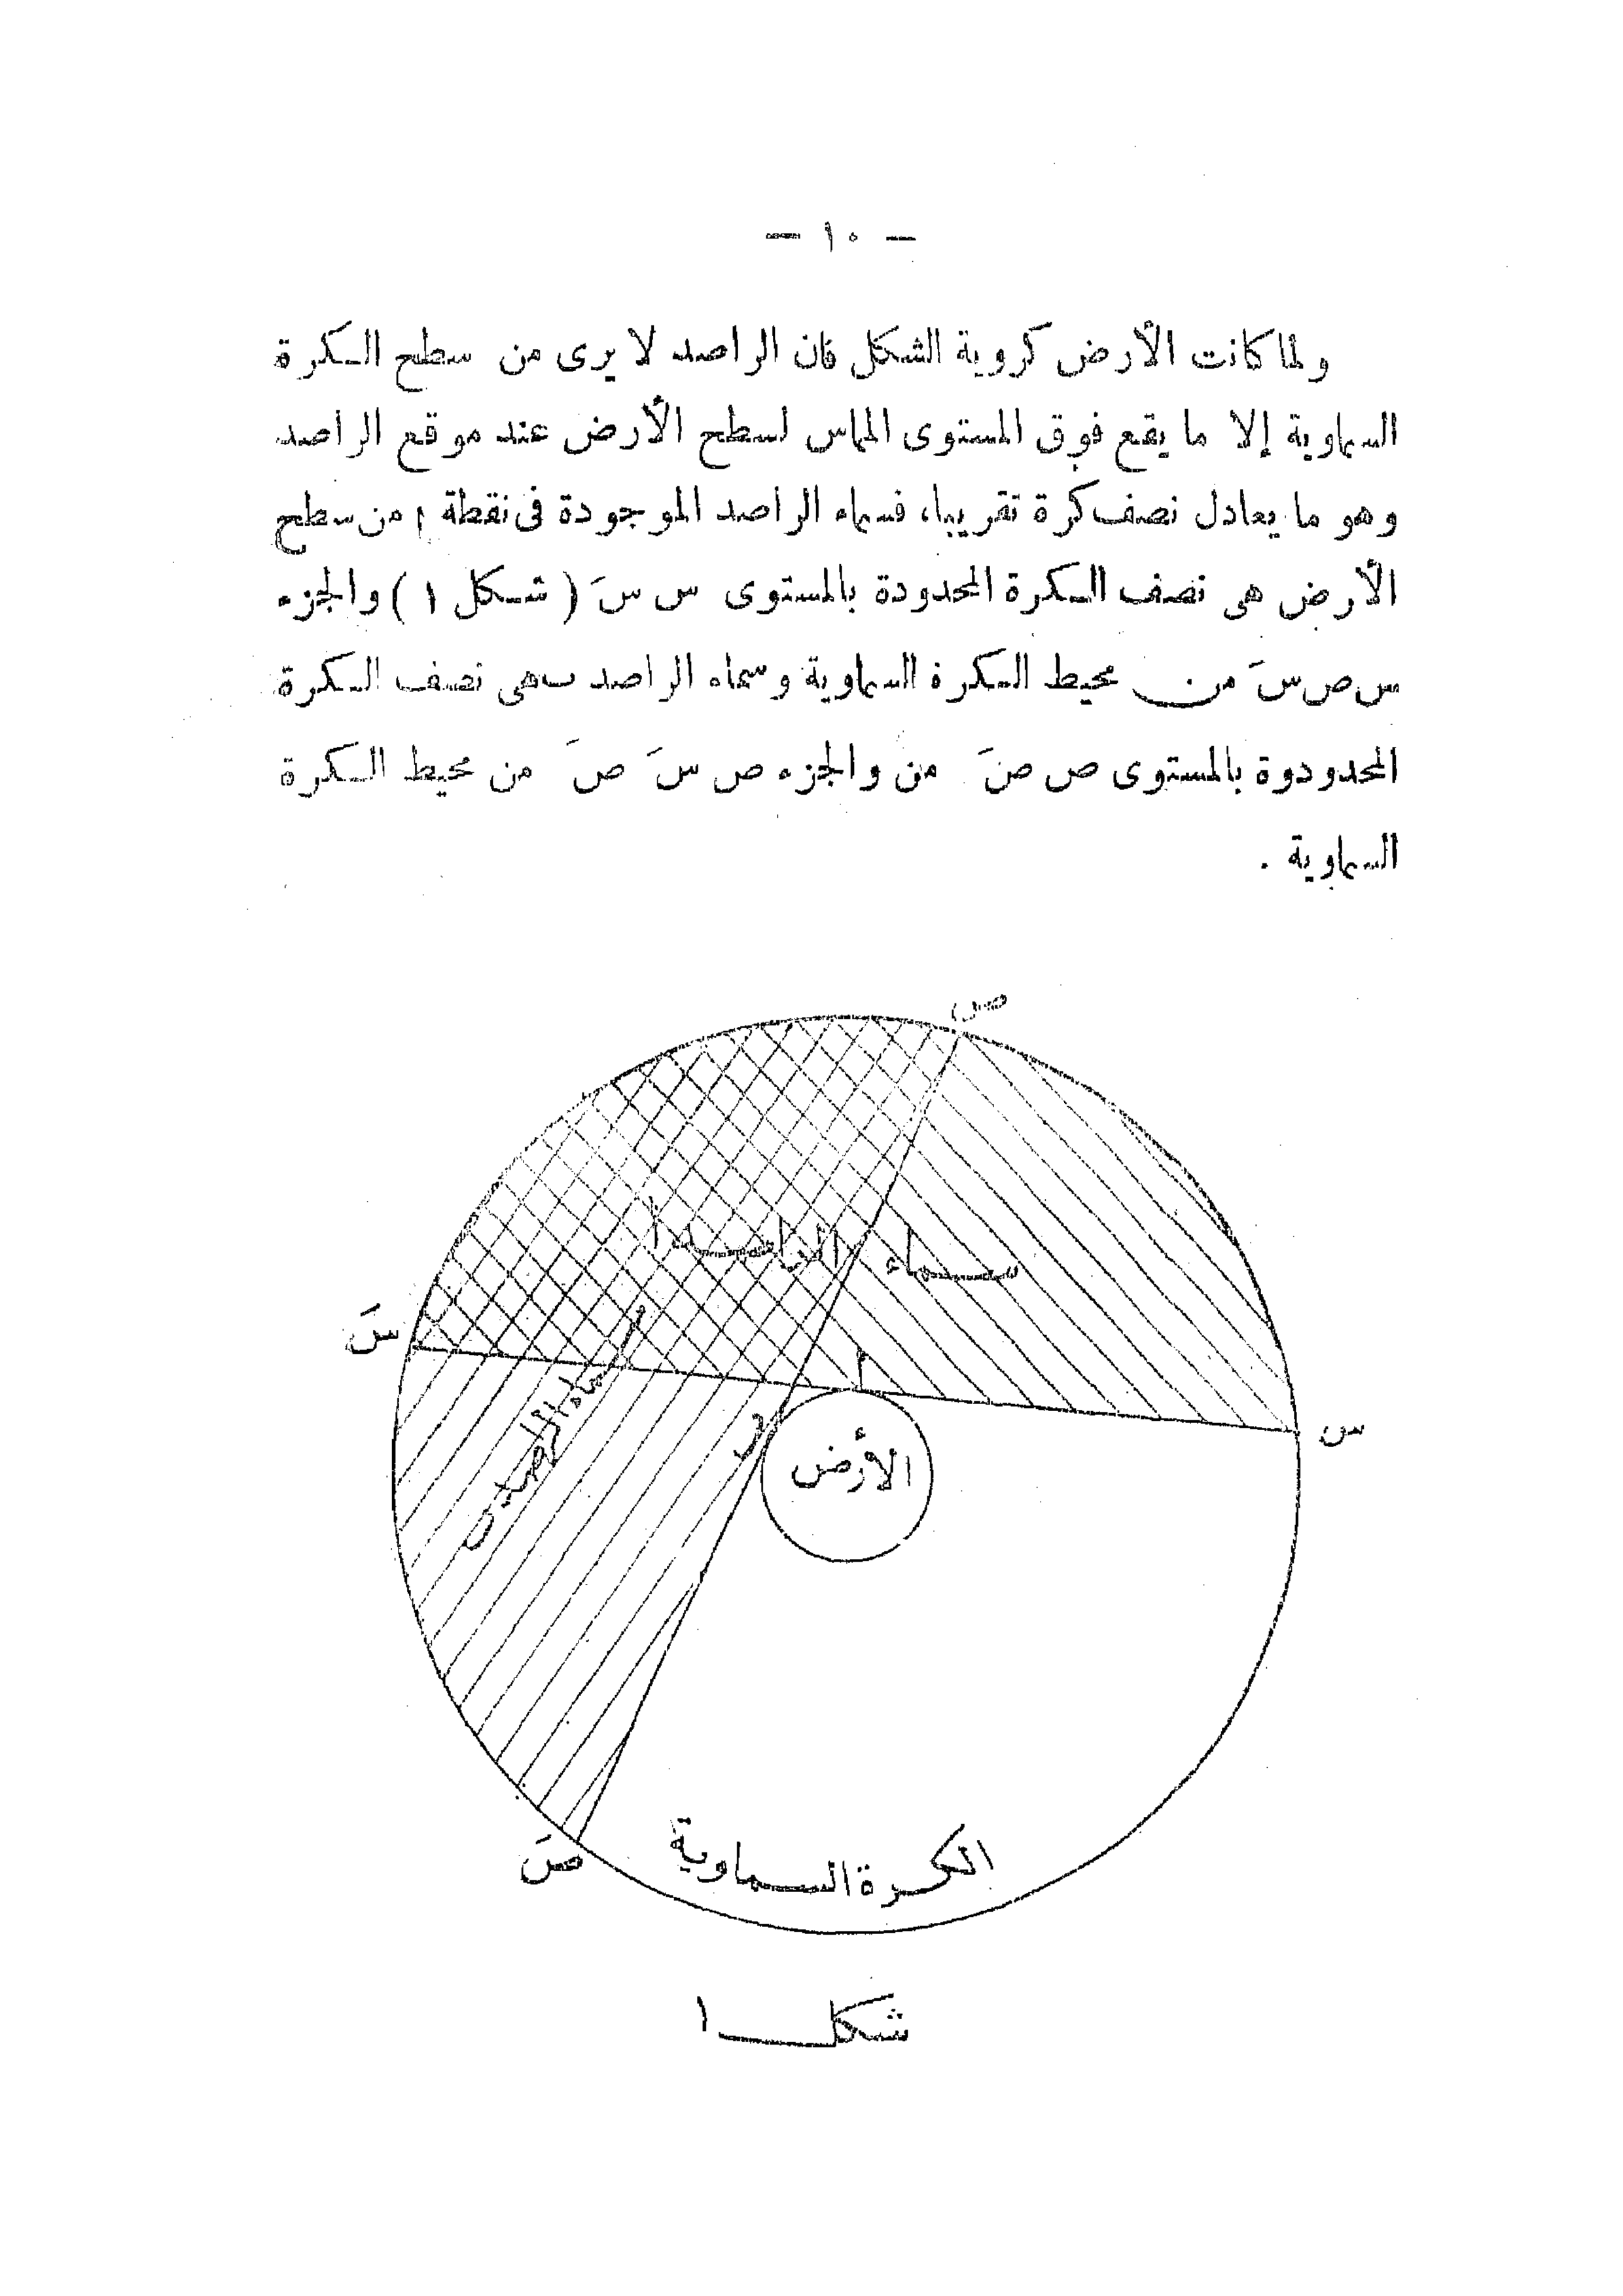 — ١٠ —
ولما كانت الأرض كروية الشكل فان الراصد لا يرى من سطح الكرة
السماوية إلا ما يقع فوق المستوى المماس لسطح الأرض عند موقع الراصد
وهو ما يعادل نصف كرة تقريبا، فسماء الراصد الموجودة فى نقطة ا من سطح
الأرض هى نصف الكرة المحدودة بالمستوى س سَ ( شكل ١ ) والجزء
س ص سَ من محيط الكرة السماوية وسماء الراصد ب هى نصف الكرة
المحدودوة بالمستوى ص صَ من والجزء ص سَ صَ من محيط الكرة
السماوية .
ص
سماء الراصد أ
سَ
سماء الراصد ب
أ
س
ب
الأرض
صَ
الكرة السماوية
شكل ١